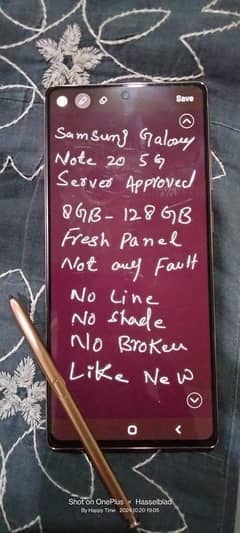 Save
Samsung Galaxy
Note 20 5G
Server Approved
8GB-128GB
Fresh Panel
Not any Fault
No Line
No Shade
No Broken
Like New
Shot on OnePlus × Hasselblad
By Happy Time 2024.10.20 19:06